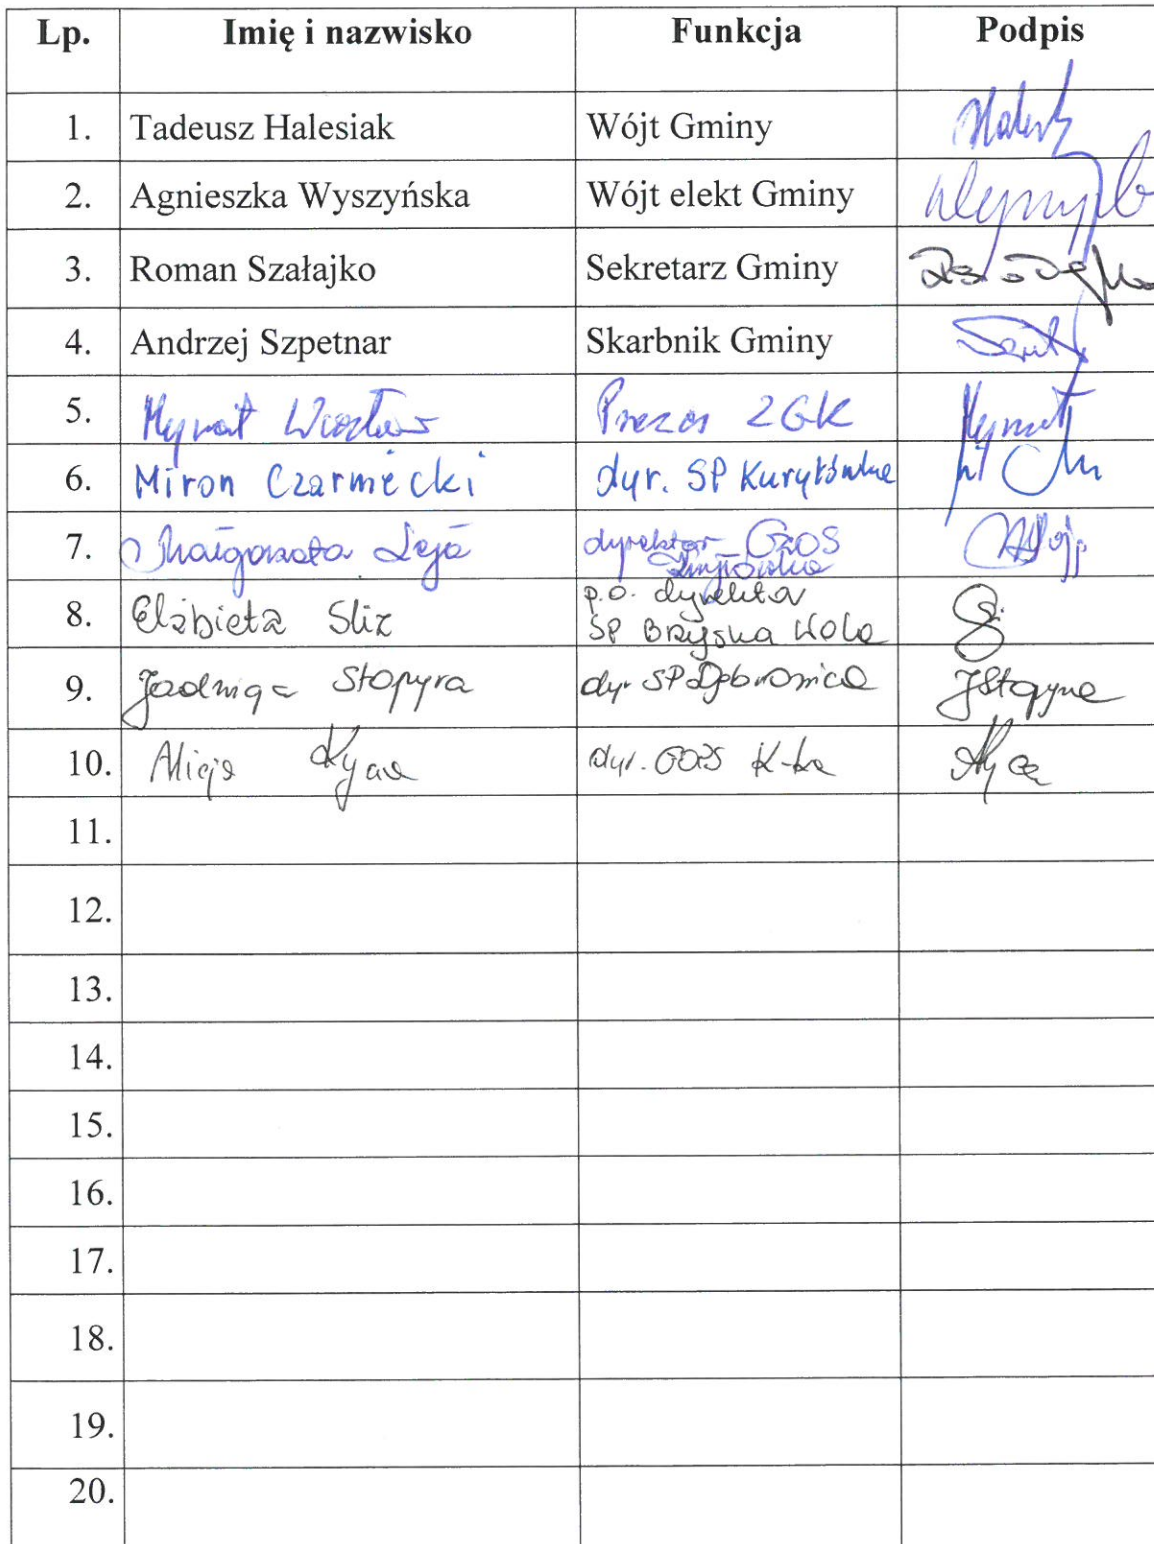 Lp. Imię i nazwisko Funkcja Podpis
1. Tadeusz Halesiak Wójt Gminy
2. Agnieszka Wyszyńska Wójt elekt Gminy
3. Roman Szałajko Sekretarz Gminy
4. Andrzej Szpetnar Skarbnik Gminy
5. Prezes ZGK
6. Miron Czarniecki dyr. SP Kuryłówka
7. Małgorzata Leja dyrektor
8. Elżbieta Śliż p.o. dyrektor
SP Brzyska Wola
9. Jadwiga Stopyra dyr SP Dąbrowica JStopyra
10. Alicja dyr. K-ka
11.
12.
13.
14.
15.
16.
17.
18.
19.
20.